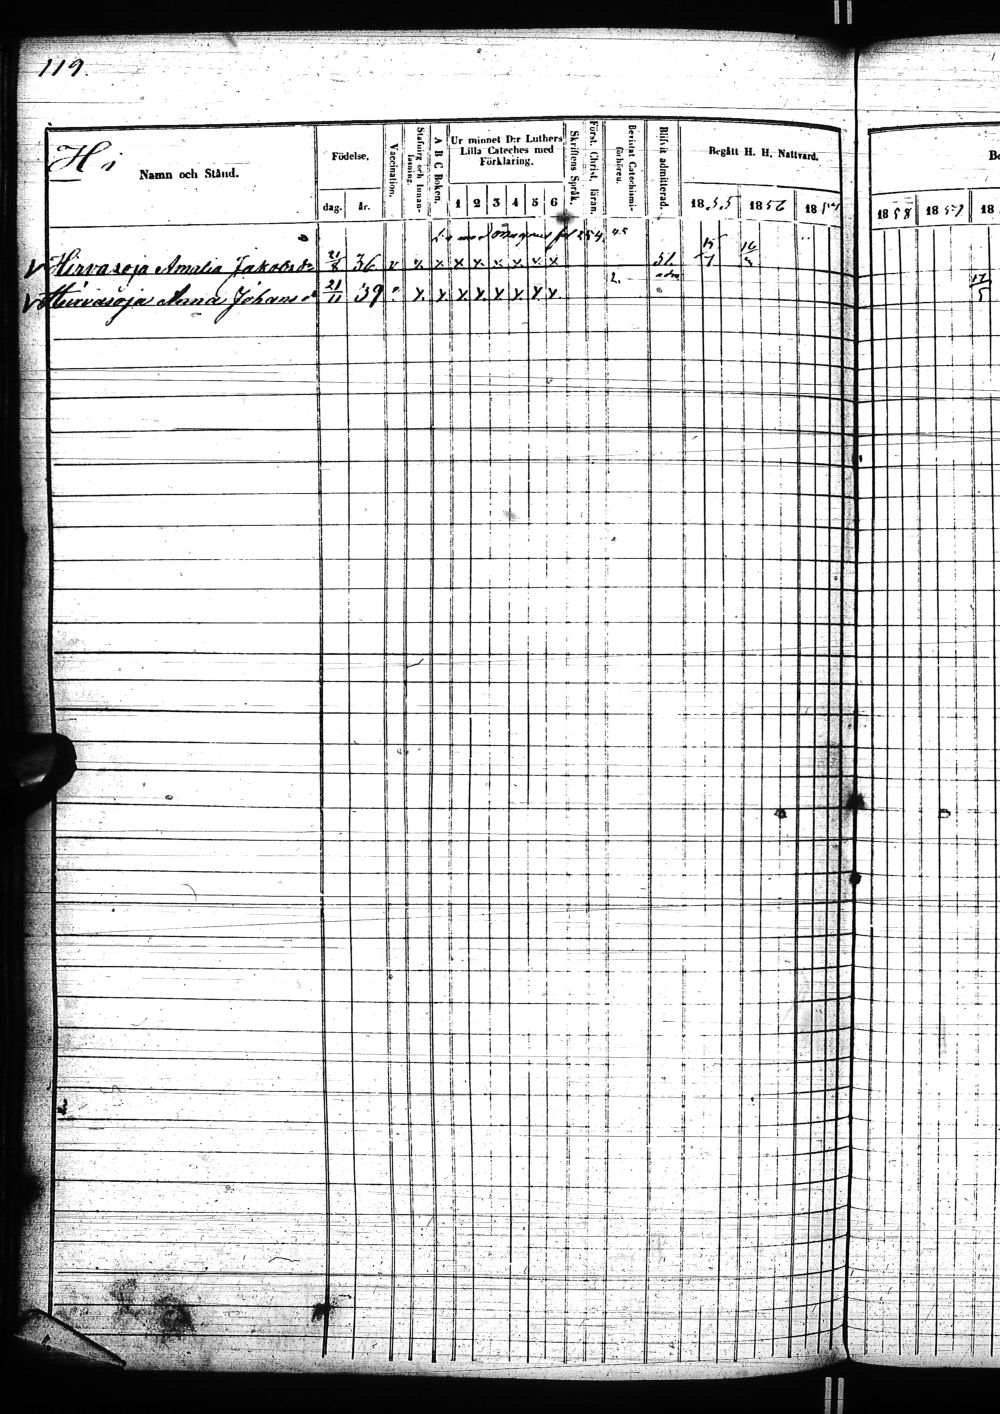 119.
Hi
Namn och Stånd.
Födelse.
dag. år.
Vaccination.
Stafning och Innanläsning.
A B C Boken.
Ur minnet D:r Luthers Lilla Cateches med Förklaring.
1 2 3 4 5 6
Skriftens Språk.
Först. Christ. läran.
Bevistat Catechismiförhören.
Blifvit admitterad.
Begått H. H. Nattvard.
1855 1856 18
1858 1859 18
Be
fol 254. 45
v Hirvasoja Amalia Jakobsdr 21/8 36 v x x x x x x x x 51 15/7 16/3
v Hirvasoja Anna Johans d 21/11 39 ? x x x x x x x x 2. 17/5